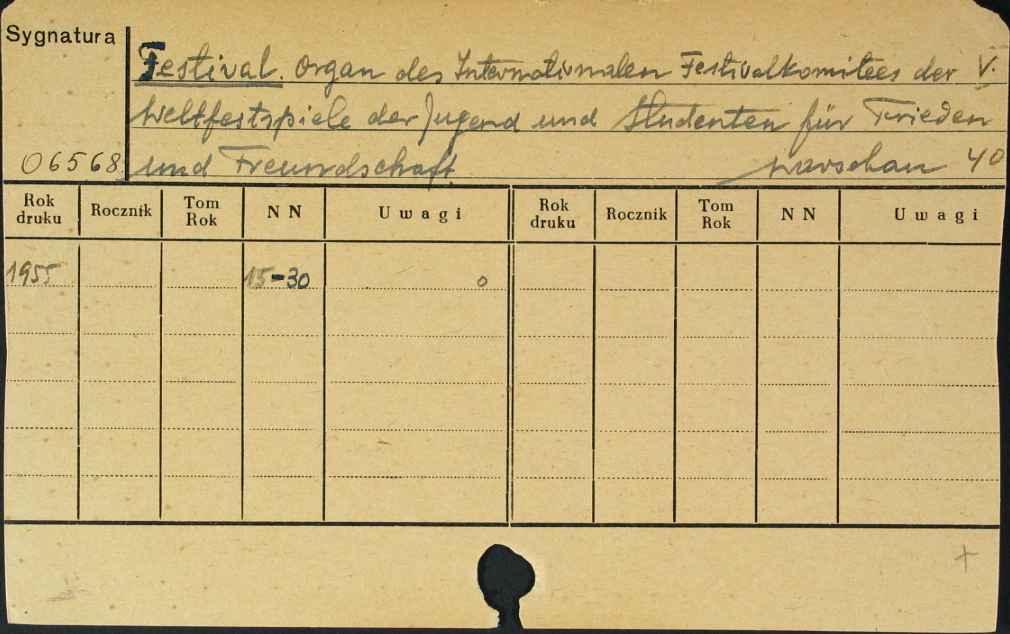 Sygnatura
Festival. Organ des Internationalen Festivalkomitees der V.
Weltfestspiele der Jugend und Studenten für Frieden
06568 und Freundschaft Warschau 4º
Rok druku Rocznik Tom Rok NN Uwagi Rok druku Rocznik Tom Rok NN Uwagi
1955 15-30 o
+